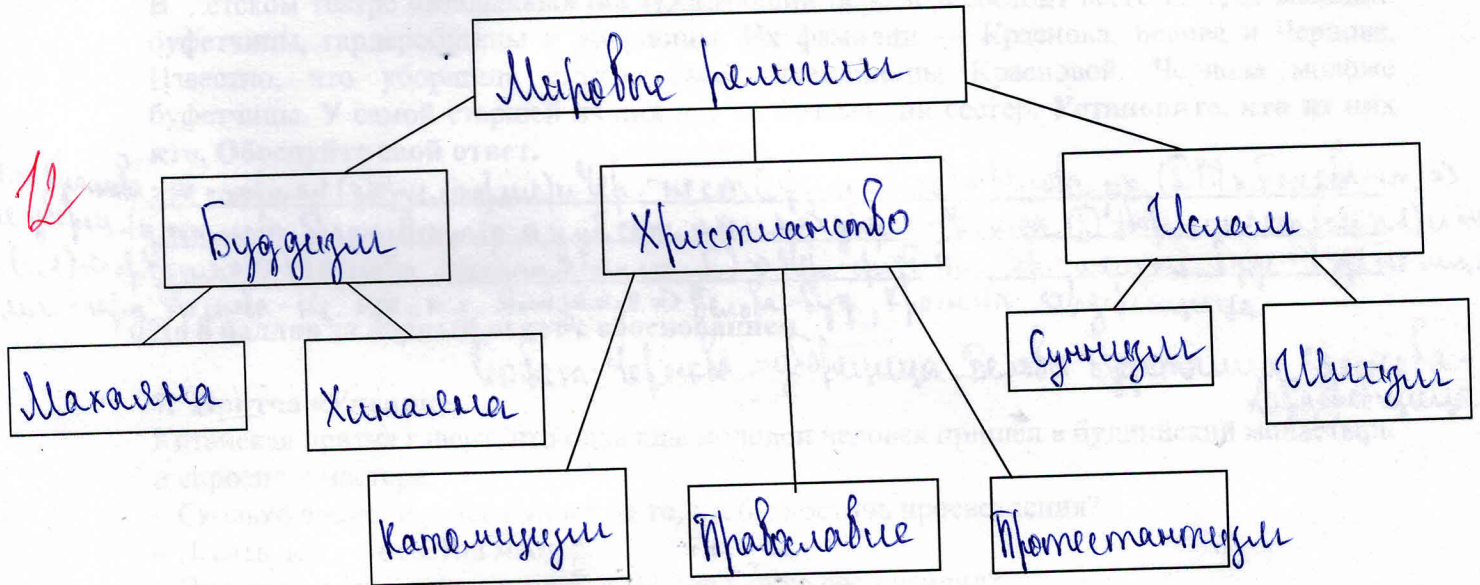 Мировые религии
12
Буддизм
Христианство
Ислам
Махаяна
Хинаяна
Суннизм
Шиизм
Католицизм
Православие
Протестантизм